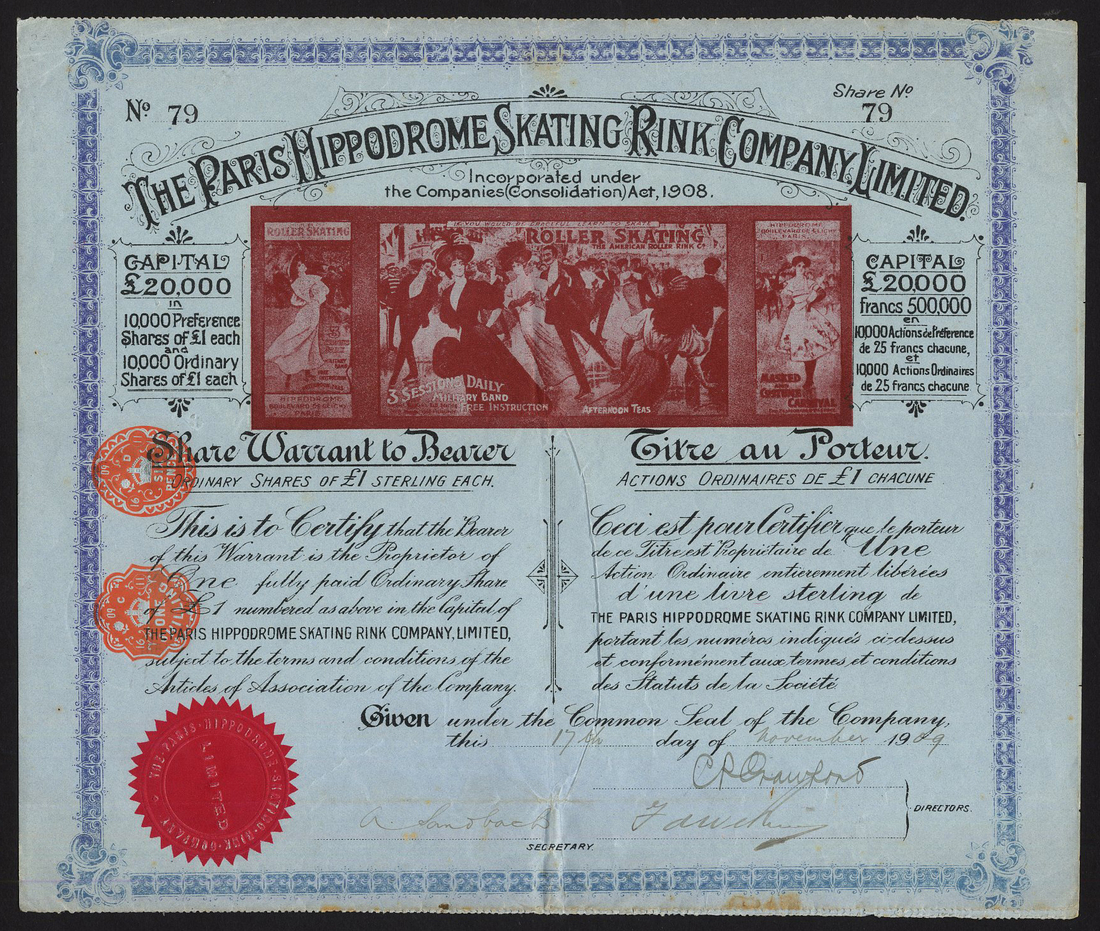 No 79
Share No
79
THE PARIS HIPPODROME SKATING RINK COMPANY, LIMITED.
Incorporated under
the Companies (Consolidation) Act, 1908.
CAPITAL
£20,000
in
10,000 Preference
Shares of £1 each
and
10,000 Ordinary
Shares of £1 each
ROLLER SKATING
HIPPODROME
BOULEVARD DE CLICHY
PARIS
IF YOU WOULD BE GRACEFUL LEARN TO SKATE
ROLLER SKATING
THE AMERICAN ROLLER RINK Co
3 SESSIONS DAILY
MILITARY BAND
FREE INSTRUCTION
AFTERNOON TEAS
HIPPODROME
BOULEVARD DE CLICHY
PARIS
MASKED
AND
COSTUME
CARNIVAL
CAPITAL
£20,000
francs 500,000
en
10000 Actions de Préférence
de 25 francs chacune,
et
10000 Actions Ordinaires
de 25 francs chacune
Share Warrant to Bearer
ORDINARY SHARES OF £1 STERLING EACH.
This is to Certify that the Bearer
of this Warrant is the Proprietor of
One fully paid Ordinary Share
of £1 numbered as above in the Capital of
THE PARIS HIPPODROME SKATING RINK COMPANY, LIMITED,
subject to the terms and conditions of the
Articles of Association of the Company.
Titre au Porteur.
ACTIONS ORDINAIRES DE £1 CHACUNE
Ceci est pour Certifier que le porteur
de ce Titre est Propriétaire de Une
Action Ordinaire entièrement libérées
d'une livre sterling de
THE PARIS HIPPODROME SKATING RINK COMPANY LIMITED,
portant les numéros indiqués ci-dessus
et conformément aux termes et conditions
des Statuts de la Société.
SIX
PENCE
Given under the Common Seal of the Company,
this 17th day of November 1909
C R Crawford
DIRECTORS.
A Sandback
SECRETARY.
THE PARIS HIPPODROME SKATING RINK COMPANY
LIMITED